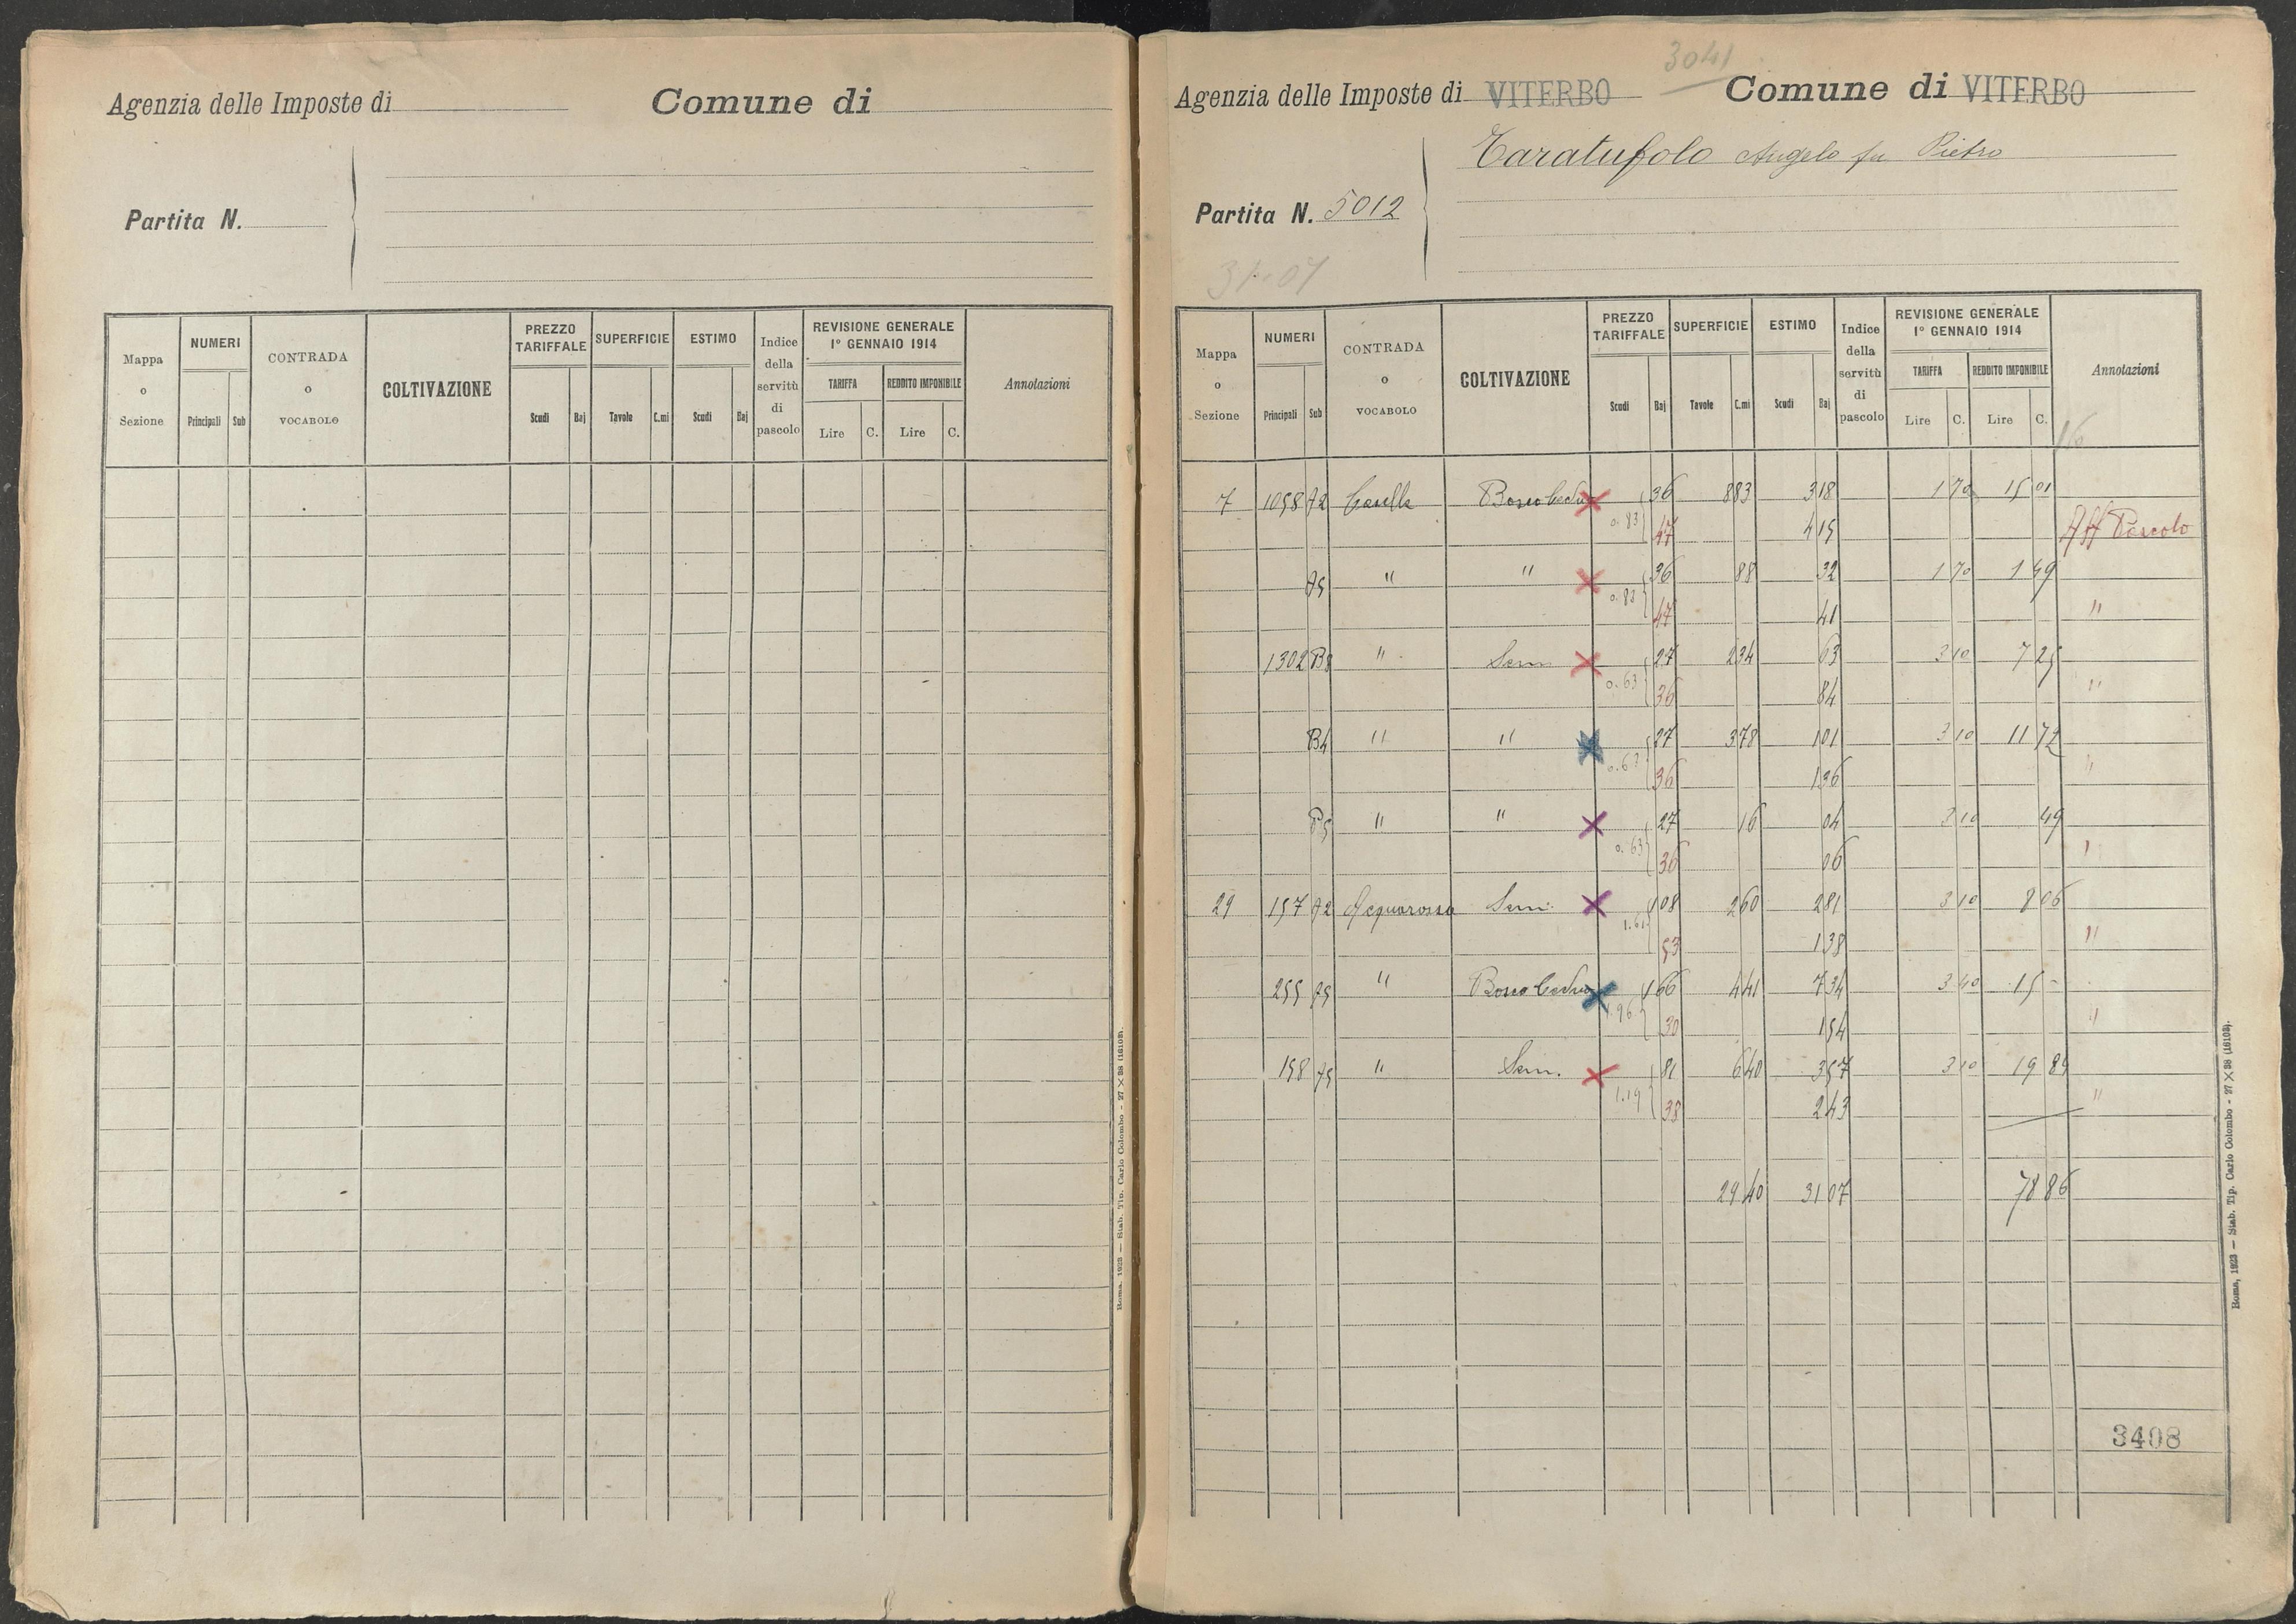 Agenzia delle Imposte di
Comune di
Partita N.
Mappa o Sezione
NUMERI
Principali
Sub
CONTRADA o VOCABOLO
COLTIVAZIONE
PREZZO TARIFFALE
Scudi
Baj
SUPERFICIE
Tavole
C.mi
ESTIMO
Scudi
Baj
Indice della servitù di pascolo
REVISIONE GENERALE 1° GENNAIO 1914
TARIFFA
Lire
C.
REDDITO IMPONIBILE
Lire
C.
Annotazioni
Roma, 1923 — Stab. Tip. Carlo Colombo - 27 × 38 (16103).
3041
Agenzia delle Imposte di VITERBO
Comune di VITERBO
Taratufolo Angelo fu Pietro
Partita N. 5012
31-07
Mappa o Sezione
NUMERI
Principali
Sub
CONTRADA o VOCABOLO
COLTIVAZIONE
PREZZO TARIFFALE
Scudi
Baj
SUPERFICIE
Tavole
C.mi
ESTIMO
Scudi
Baj
Indice della servitù di pascolo
REVISIONE GENERALE 1° GENNAIO 1914
TARIFFA
Lire
C.
REDDITO IMPONIBILE
Lire
C.
Annotazioni
16
7 1058 A2 Casella Bosco Ceduo 36 8 83 3 18 1 70 15 01
0.83 47 4 15 Aff Pascolo
A5 " " 36 88 32 1 70 1 49
0.83 47 41 "
1302 B3 " Sem 27 2 34 63 3 10 7 25
0.63 36 84 "
B4 " " 27 3 78 1 01 3 10 11 72
0.63 36 1 36 "
B5 " " 27 16 04 3 10 49
0.63 36 06 "
29 157 A2 Acquarossa Sem. 1 08 2 60 2 81 3 10 8 06
1.61 53 1 38 "
255 A5 " Bosco Ceduo 1 66 4 41 7 34 3 40 15 -
1.96 30 1 54 "
158 A5 " Sem. 81 6 40 3 57 3 10 19 84
1.19 38 2 43 "
29 40 31 07 78 86
3408
Roma, 1923 — Stab. Tip. Carlo Colombo - 27 × 38 (16103).